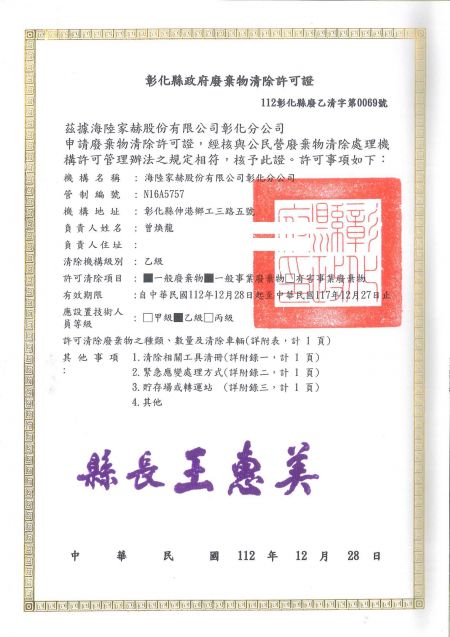 彰化縣政府廢棄物清除許可證
112彰化縣廢乙清字第0069號
茲據海陸家赫股份有限公司彰化分公司
申請廢棄物清除許可證,經核與公民營廢棄物清除處理機
構許可管理辦法之規定相符,核予此證。許可事項如下:
機構名稱:海陸家赫股份有限公司彰化分公司
管制編號:N16A5757
機構地址:彰化縣伸港鄉工三路五號
負責人姓名:曾煥龍
負責人住址:
清除機構級別:乙級
許可清除項目:■一般廢棄物■一般事業廢棄物□有害事業廢棄物
有效期限:自中華民國112年12月28日起至中華民國117年12月27日止
應設置技術人員等級:□甲級■乙級□丙級
許可清除廢棄物之種類、數量及清除車輛(詳附表,計 1 頁)
其他事項:1.清除相關工具清冊(詳附錄一,計 1 頁)
2.緊急應變處理方式(詳附錄二,計 1 頁)
3.貯存場或轉運站 (詳附錄三,計 1 頁)
4.其他
縣長王惠美
中華民國 112 年 12 月 28 日